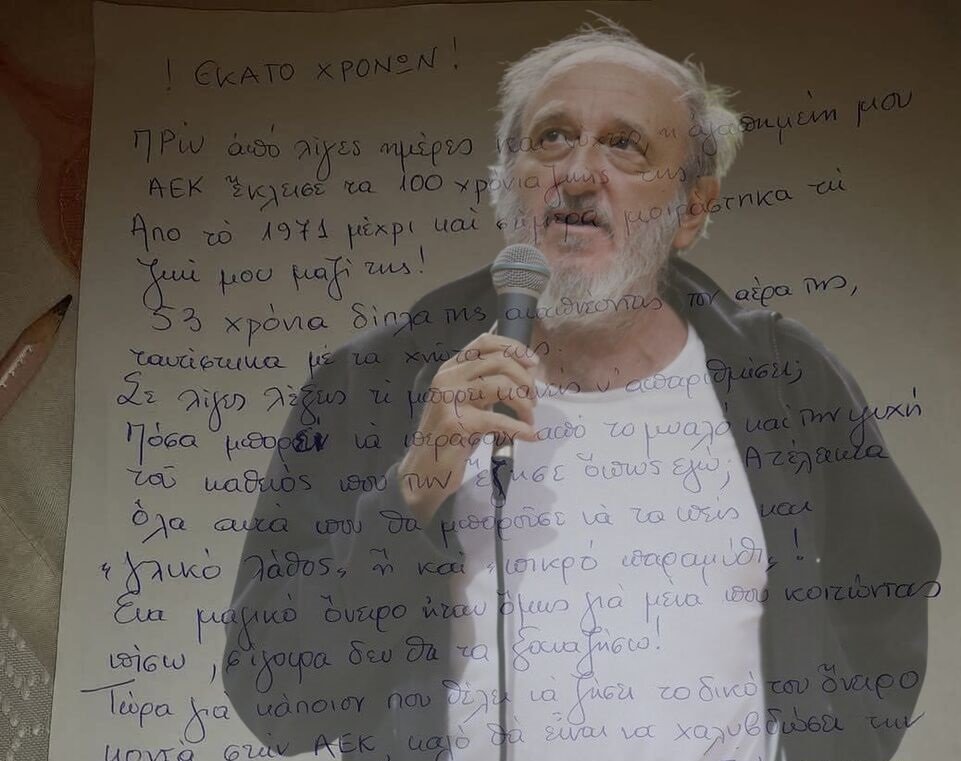 ! ΕΚΑΤΟ ΧΡΟΝΩΝ !
Πρίν άπό λίγες ημέρες η αγαπημένη μου
ΑΕΚ ἔκλεισε τα 100 χρόνια ζωής της
Απο τό 1971 μέχρι καί σήμερα μοιράστηκα τή
ζωή μου μαζί της!
53 χρόνια δίπλα της αναπνέοντας τον αέρα της,
ταυτίστηκα μέ τα χνώτα της.
Σε λίγες λέξεις τί μπορεί κανείς ν' απαριθμήσει;
Πόσα μπορεί νά περάσουν από το μυαλό καί την ψυχή
τοῦ καθενός που την ἔζησε ὅπως εγώ; Ατέλειωτα
ὅλα αυτά που θα μπορούσε νά τα πείς και
"γλυκό λάθος" ἤ καί "πικρό παραμύθι" !
Ενα μαγικό ὄνειρο ήταν ὅμως γιά μενα που κοιτώντας
πίσω, σίγουρα δεν θα τα ξαναζήσω!
Τώρα γιά κάποιον που θέλει νά ζήσει το δικό του ὄνειρο
κοντά στήν ΑΕΚ, καλό θά εἶναι να χαλυβδώσει την